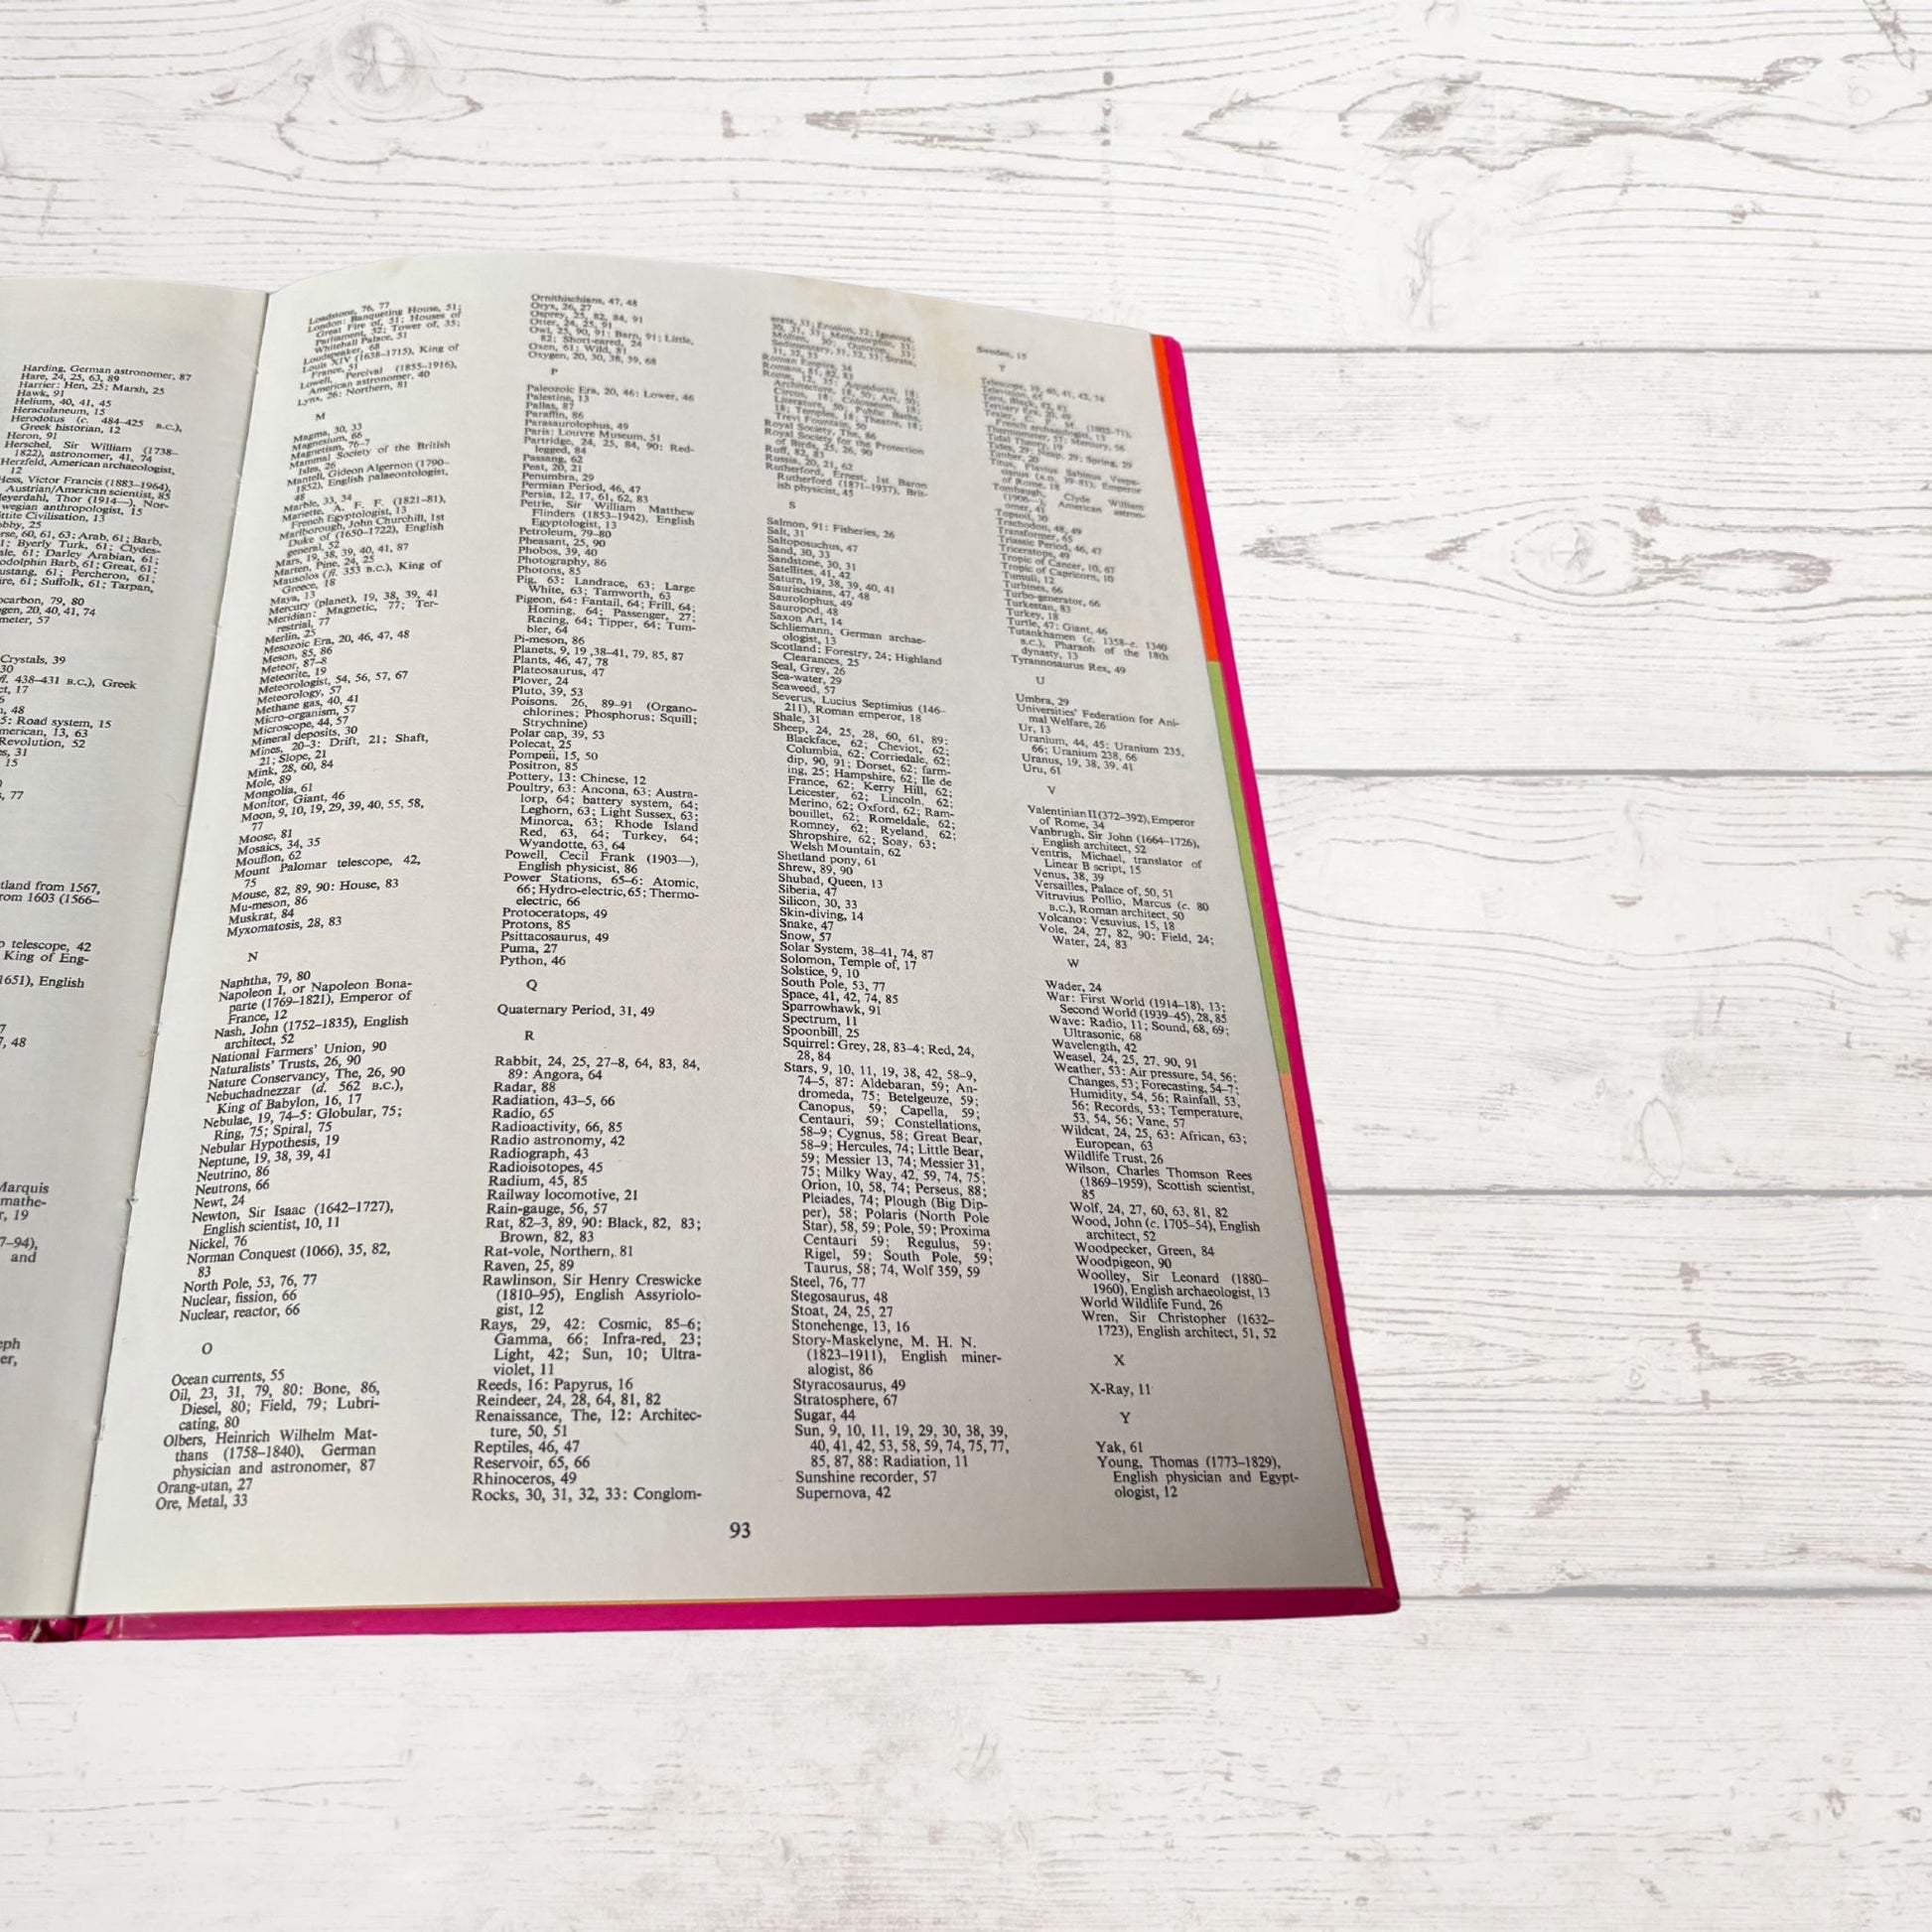 Harding, German astronomer, 87
Hare, 24, 25, 63, 89
Harrier: Hen, 25; Marsh, 25
Hawk, 91
Helium, 40, 41, 45
Heraculaneum, 15
Herodotus (c. 484–425 B.C.),
Greek historian, 12
Heron, 91
Herschel, Sir William (1738–
1822), astronomer, 41, 74
Herzfeld, American archaeologist,
12
Hess, Victor Francis (1883–1964),
Austrian/American scientist, 85
eyerdahl, Thor (1914—), Nor-
wegian anthropologist, 15
ttite Civilisation, 13
obby, 25
rse, 60, 61, 63: Arab, 61; Barb,
1; Byerly Turk, 61; Clydes-
ale, 61; Darley Arabian, 61;
odolphin Barb, 61; Great, 61;
ustang, 61; Percheron, 61;
ire, 61; Suffolk, 61; Tarpan,
ocarbon, 79, 80
gen, 20, 40, 41, 74
meter, 57
Crystals, 39
30
ff. 438–431 B.C.), Greek
ct, 17
, 48
5: Road system, 15
merican, 13, 63
Revolution, 52
s, 31
15
, 77
tland from 1567,
rom 1603 (1566–
o telescope, 42
King of Eng-
1651), English
7
7, 48
Marquis
mathe-
r, 19
7–94),
and
eph
er,
Loadstone, 76, 77
London: Banqueting House, 51;
Great Fire of, 51; Houses of
Parliament, 52; Tower of, 35;
Whitehall Palace, 51
Loudspeaker, 68
Louis XIV (1638–1715), King of
France, 51
Lowell, Percival (1855–1916),
American astronomer, 40
Lynx, 26: Northern, 81
M
Magma, 30, 33
Magnesium, 66
Magnetism, 76–7
Mammal Society of the British
Isles, 26
Mantell, Gideon Algernon (1790–
1852), English palaeontologist,
48
Marble, 33, 34
Mariette, A. F. F. (1821–81),
French Egyptologist, 13
Marlborough, John Churchill, 1st
Duke of (1650–1722), English
general, 52
Mars, 19, 38, 39, 40, 41, 87
Marten, Pine, 24, 25
Mausolos (ff. 353 B.C.), King of
Greece, 18
Maya, 13
Mercury (planet), 19, 38, 39, 41
Meridian: Magnetic, 77; Ter-
restrial, 77
Merlin, 25
Mesozoic Era, 20, 46, 47, 48
Meson, 85, 86
Meteor, 87–8
Meteorite, 19
Meteorologist, 54, 56, 57, 67
Meteorology, 57
Methane gas, 40, 41
Micro-organism, 57
Microscope, 44, 57
Mineral deposits, 30
Mines, 20–3: Drift, 21; Shaft,
21; Slope, 21
Mink, 28, 60, 84
Mole, 89
Mongolia, 61
Monitor, Giant, 46
Moon, 9, 10, 19, 29, 39, 40, 55, 58,
77
Moose, 81
Mosaics, 34, 35
Mouflon, 62
Mount Palomar telescope, 42,
75
Mouse, 82, 89, 90: House, 83
Mu-meson, 86
Muskrat, 84
Myxomatosis, 28, 83
N
Naphtha, 79, 80
Napoleon I, or Napoleon Bona-
parte (1769–1821), Emperor of
France, 12
Nash, John (1752–1835), English
architect, 52
National Farmers' Union, 90
Naturalists' Trusts, 26, 90
Nature Conservancy, The, 26, 90
Nebuchadnezzar (d. 562 B.C.),
King of Babylon, 16, 17
Nebulae, 19, 74–5: Globular, 75;
Ring, 75; Spiral, 75
Nebular Hypothesis, 19
Neptune, 19, 38, 39, 41
Neutrino, 86
Neutrons, 66
Newt, 24
Newton, Sir Isaac (1642–1727),
English scientist, 10, 11
Nickel, 76
Norman Conquest (1066), 35, 82,
83
North Pole, 53, 76, 77
Nuclear, fission, 66
Nuclear, reactor, 66
O
Ocean currents, 55
Oil, 23, 31, 79, 80: Bone, 86,
Diesel, 80; Field, 79; Lubri-
cating, 80
Olbers, Heinrich Wilhelm Mat-
thans (1758–1840), German
physician and astronomer, 87
Orang-utan, 27
Ore, Metal, 33
Ornithischians, 47, 48
Oryx, 26, 27
Osprey, 25, 82, 84, 91
Otter, 24, 25, 91
Owl, 25, 90, 91: Barn, 91; Little,
82; Short-eared, 24
Oxen, 61; Wild, 81
Oxygen, 20, 30, 38, 39, 68
P
Paleozoic Era, 20, 46: Lower, 46
Palestine, 13
Pallas, 87
Paraffin, 86
Parasaurolophus, 49
Paris: Louvre Museum, 51
Partridge, 24, 25, 84, 90: Red-
legged, 84
Passang, 62
Peat, 20, 21
Penumbra, 29
Permian Period, 46, 47
Persia, 12, 17, 61, 62, 83
Petrie, Sir William Matthew
Flinders (1853–1942), English
Egyptologist, 13
Petroleum, 79–80
Pheasant, 25, 90
Phobos, 39, 40
Photography, 86
Photons, 85
Pig, 63: Landrace, 63; Large
White, 63; Tamworth, 63
Pigeon, 64: Fantail, 64; Frill, 64;
Homing, 64; Passenger, 27;
Racing, 64; Tipper, 64; Tum-
bler, 64
Pi-meson, 86
Planets, 9, 19 ,38–41, 79, 85, 87
Plants, 46, 47, 78
Plateosaurus, 47
Plover, 24
Pluto, 39, 53
Poisons, 26, 89–91 (Organo-
chlorines; Phosphorus; Squill;
Strychnine)
Polar cap, 39, 53
Polecat, 25
Pompeii, 15, 50
Positron, 85
Pottery, 13: Chinese, 12
Poultry, 63: Ancona, 63; Austra-
lorp, 64; battery system, 64;
Leghorn, 63; Light Sussex, 63;
Minorca, 63; Rhode Island
Red, 63, 64; Turkey, 64;
Wyandotte, 63, 64
Powell, Cecil Frank (1903—),
English physicist, 86
Power Stations, 65–6: Atomic,
66; Hydro-electric, 65; Thermo-
electric, 66
Protoceratops, 49
Protons, 85
Psittacosaurus, 49
Puma, 27
Python, 46
Q
Quaternary Period, 31, 49
R
Rabbit, 24, 25, 27–8, 64, 83, 84,
89: Angora, 64
Radar, 88
Radiation, 43–5, 66
Radio, 65
Radioactivity, 66, 85
Radio astronomy, 42
Radiograph, 43
Radioisotopes, 45
Radium, 45, 85
Railway locomotive, 21
Rain-gauge, 56, 57
Rat, 82–3, 89, 90: Black, 82, 83;
Brown, 82, 83
Rat-vole, Northern, 81
Raven, 25, 89
Rawlinson, Sir Henry Creswicke
(1810–95), English Assyriolo-
gist, 12
Rays, 29, 42: Cosmic, 85–6;
Gamma, 66; Infra-red, 23;
Light, 42; Sun, 10; Ultra-
violet, 11
Reeds, 16: Papyrus, 16
Reindeer, 24, 28, 64, 81, 82
Renaissance, The, 12: Architec-
ture, 50, 51
Reptiles, 46, 47
Reservoir, 65, 66
Rhinoceros, 49
Rocks, 30, 31, 32, 33: Conglom-
erate, 33; Erosion, 32; Igneous,
30, 31, 33; Metamorphic, 33;
Molten, 30; Quarries, 33;
Sedimentary, 31, 32, 33; Strata,
31, 32, 33
Roman Empire, 34
Romans, 81, 82, 83
Rome, 12, 35: Aqueducts, 18;
Architecture, 18, 50; Art, 50;
Circus, 18; Colosseum, 18;
Literature, 50; Public Baths,
18; Temples, 18; Theatre, 18;
Trevi Fountain, 50
Royal Society, The, 86
Royal Society for the Protection
of Birds, 25, 26, 90
Ruff, 82, 83
Russia, 20, 21, 62
Rutherford, Ernest, 1st Baron
Rutherford (1871–1937), Brit-
ish physicist, 45
S
Salmon, 91: Fisheries, 26
Salt, 31
Saltoposuchus, 47
Sand, 30, 33
Sandstone, 30, 31
Satellites, 41, 42
Saturn, 19, 38, 39, 40, 41
Saurischians, 47, 48
Saurolophus, 49
Sauropod, 48
Saxon Art, 14
Schliemann, German archae-
ologist, 13
Scotland: Forestry, 24; Highland
Clearances, 25
Seal, Grey, 26
Sea-water, 29
Seaweed, 57
Severus, Lucius Septimius (146–
211), Roman emperor, 18
Shale, 31
Sheep, 24, 25, 28, 60, 61, 89:
Blackface, 62; Cheviot, 62;
Columbia, 62; Corriedale, 62;
dip, 90, 91; Dorset, 62; farm-
ing, 25; Hampshire, 62; Ile de
France, 62; Kerry Hill, 62;
Leicester, 62; Lincoln, 62;
Merino, 62; Oxford, 62; Ram-
bouillet, 62; Romeldale, 62;
Romney, 62; Ryeland, 62;
Shropshire, 62; Soay, 63;
Welsh Mountain, 62
Shetland pony, 61
Shrew, 89, 90
Shubad, Queen, 13
Siberia, 47
Silicon, 30, 33
Skin-diving, 14
Snake, 47
Snow, 57
Solar System, 38–41, 74, 87
Solomon, Temple of, 17
Solstice, 9, 10
South Pole, 53, 77
Space, 41, 42, 74, 85
Sparrowhawk, 91
Spectrum, 11
Spoonbill, 25
Squirrel: Grey, 28, 83–4; Red, 24,
28, 84
Stars, 9, 10, 11, 19, 38, 42, 58–9,
74–5, 87: Aldebaran, 59; An-
dromeda, 75; Betelgeuze, 59;
Canopus, 59; Capella, 59;
Centauri, 59; Constellations,
58–9; Cygnus, 58; Great Bear,
58–9; Hercules, 74; Little Bear,
59; Messier 13, 74; Messier 31,
75; Milky Way, 42, 59, 74, 75;
Orion, 10, 58, 74; Perseus, 88;
Pleiades, 74; Plough (Big Dip-
per), 58; Polaris (North Pole
Star), 58, 59; Pole, 59; Proxima
Centauri 59; Regulus, 59;
Rigel, 59; South Pole, 59;
Taurus, 58; 74, Wolf 359, 59
Steel, 76, 77
Stegosaurus, 48
Stoat, 24, 25, 27
Stonehenge, 13, 16
Story-Maskelyne, M. H. N.
(1823–1911), English miner-
alogist, 86
Styracosaurus, 49
Stratosphere, 67
Sugar, 44
Sun, 9, 10, 11, 19, 29, 30, 38, 39,
40, 41, 42, 53, 58, 59, 74, 75, 77,
85, 87, 88: Radiation, 11
Sunshine recorder, 57
Supernova, 42
Sweden, 15
T
Telescope, 19, 40, 41, 42, 74
Television, 65
Tern, Black, 82, 83
Tertiary Era, 20, 49
French archaeologist, 13
Thermometer, 57: Mercury, 56
Tidal Theory, 19
Tides, 29; Neap, 29; Spring, 29
Timber, 20
Titus, Flavius Sabinus Vespa-
sianus (A.D. 39–81), Emperor
of Rome, 18
Tombaugh, Clyde William
(1906—), American astron-
omer, 41
Topsoil, 30
Trachodon, 48, 49
Transformer, 65
Triassic Period, 46, 47
Triceratops, 49
Tropic of Cancer, 10, 67
Tropic of Capricorn, 10
Tumuli, 12
Turbines, 66
Turbo-generator, 66
Turkestan, 83
Turkey, 18
Turtle, 47: Giant, 46
Tutankhamen (c. 1358–c. 1340
B.C.), Pharaoh of the 18th
dynasty, 13
Tyrannosaurus Rex, 49
U
Umbra, 29
Universities' Federation for Ani-
mal Welfare, 26
Ur, 13
Uranium, 44, 45: Uranium 235,
66; Uranium 238, 66
Uranus, 19, 38, 39, 41
Uru, 61
V
Valentinian II (372–392), Emperor
of Rome, 34
Vanbrugh, Sir John (1664–1726),
English architect, 52
Ventris, Michael, translator of
Linear B script, 15
Venus, 38, 39
Versailles, Palace of, 50, 51
Vitruvius Pollio, Marcus (c. 80
B.C.), Roman architect, 50
Volcano: Vesuvius, 15, 18
Vole, 24, 27, 82, 90: Field, 24;
Water, 24, 83
W
Wader, 24
War: First World (1914–18), 13;
Second World (1939–45), 28, 85
Wave: Radio, 11; Sound, 68, 69;
Ultrasonic, 68
Wavelength, 42
Weasel, 24, 25, 27, 90, 91
Weather, 53: Air pressure, 54, 56;
Changes, 53; Forecasting, 54–7;
Humidity, 54, 56; Rainfall, 53,
56; Records, 53; Temperature,
53, 54, 56; Vane, 57
Wildcat, 24, 25, 63: African, 63;
European, 63
Wildlife Trust, 26
Wilson, Charles Thomson Rees
(1869–1959), Scottish scientist,
85
Wolf, 24, 27, 60, 63, 81, 82
Wood, John (c. 1705–54), English
architect, 52
Woodpecker, Green, 84
Woodpigeon, 90
Woolley, Sir Leonard (1880–
1960), English archaeologist, 13
World Wildlife Fund, 26
Wren, Sir Christopher (1632–
1723), English architect, 51, 52
X
X-Ray, 11
Y
Yak, 61
Young, Thomas (1773–1829),
English physician and Egypt-
ologist, 12
93